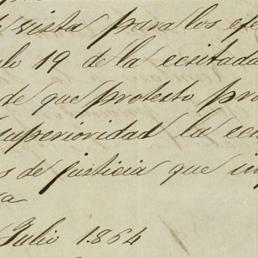 vista para los efe
lo 19 de la ecsitada
de que protesto pro
superioridad la ec
s de justicia que im
va
Julio 1864